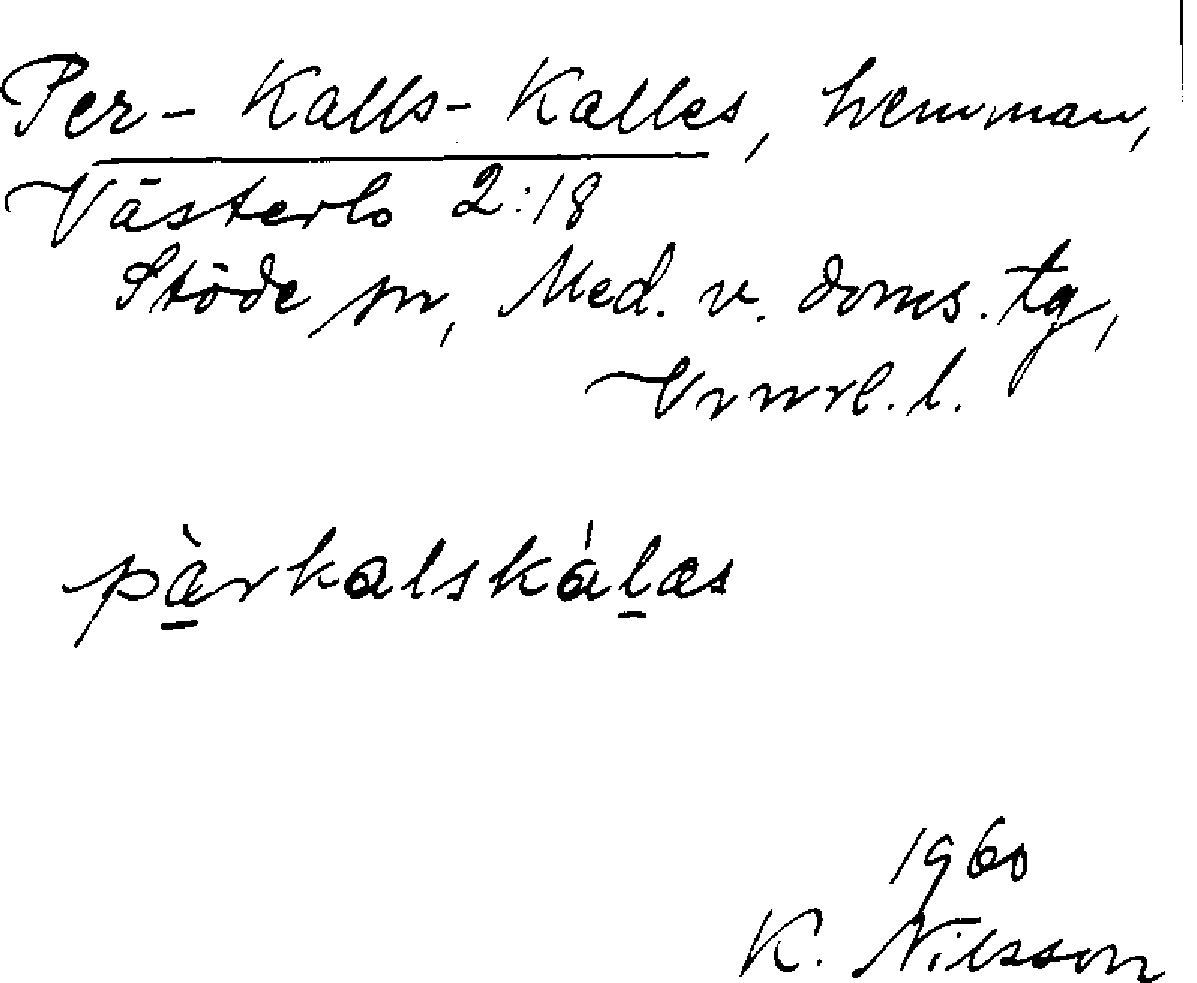 Per-Kalls-Kalles, hemman,
Västerlo 2:18
Stöde sn, Med. v. doms. tg,
Vnrl. l.
pàrkalskálas
1960
K. Nilsson